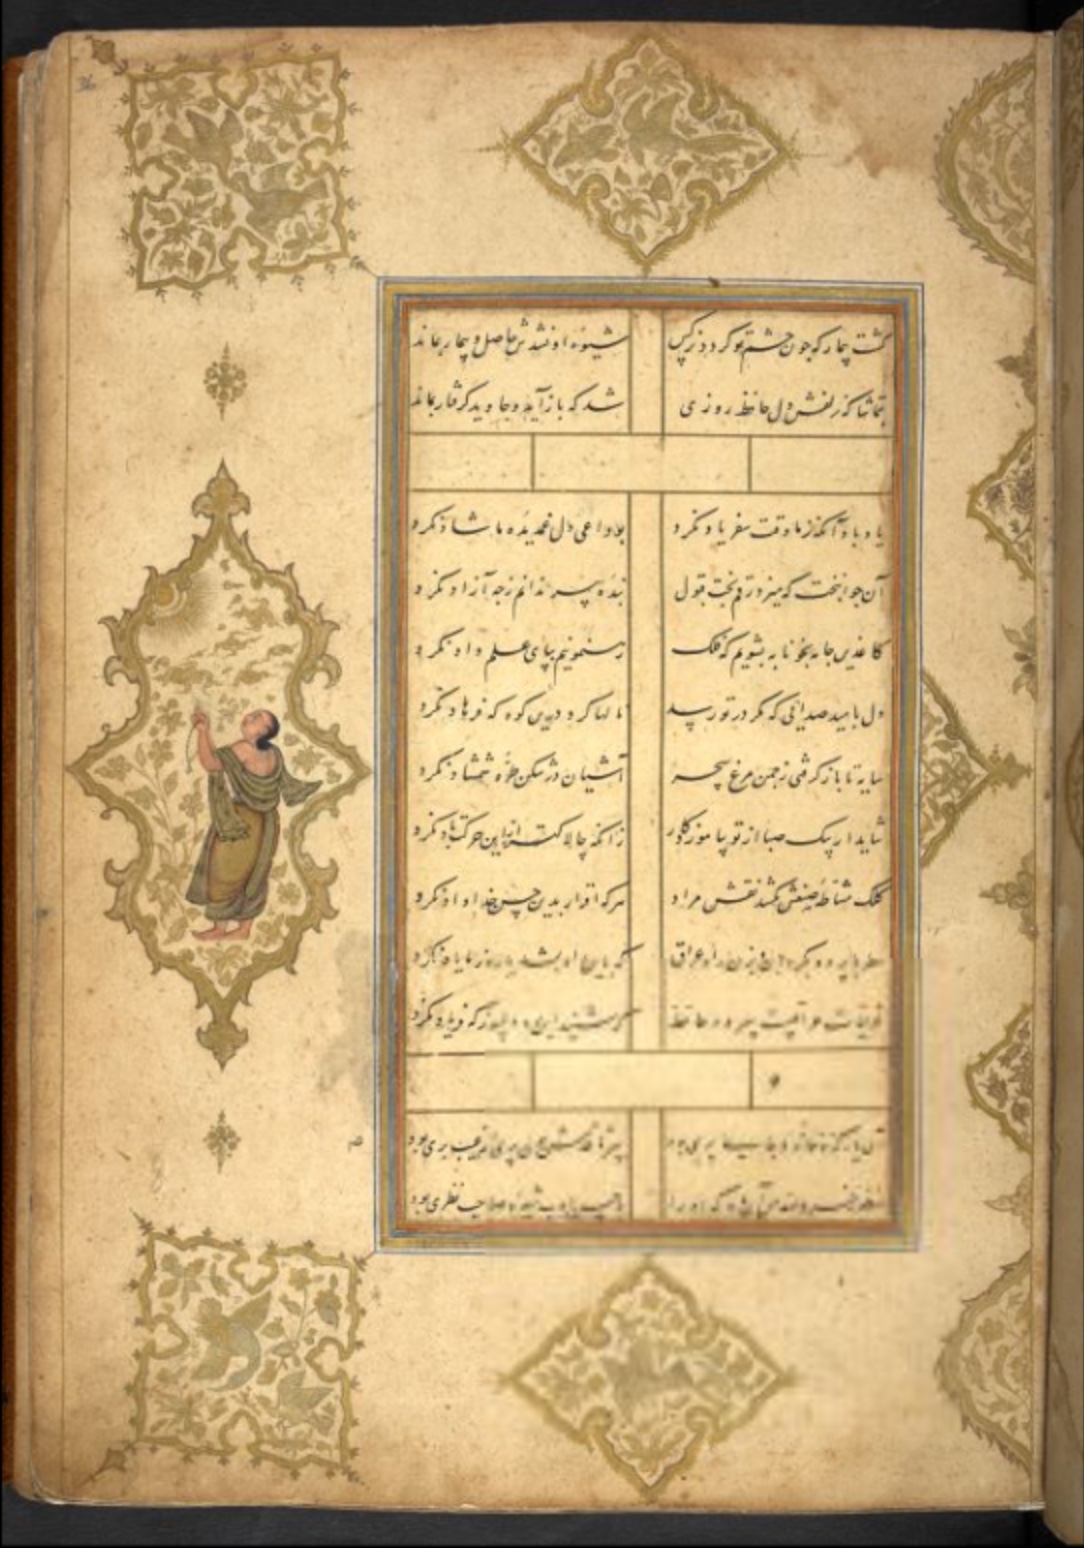 گشت بیمار که چون چشم تو گردد نرگس شیوه او نشدش حاصل و بیمار بماند
بتماشاکه زلفش دل حافظ روزی شد که باز آید و جاوید گرفتار بماند
یاد باد آنکه ز ما وقت سفر یاد نکرد بوداعی دل غمدیده ما شاد نکرد
آن جوانبخت که میزد رقم بخت قبول بنده پیر ندانم ز چه آزاد نکرد
کاغذین جامه بخونابه بشویم که فلک رهنمونیم بپای علم داد نکرد
دل بامید صدائی که مگر در تو رسد نالها کرد درین کوه که فرهاد نکرد
سایه تا باز گرفتی ز چمن مرغ سحر آشیان در شکن طره شمشاد نکرد
شاید ار پیک صبا از تو بیاموزد کار زانکه چالاکتر ازین حرکت باد نکرد
کلک مشاطه صنعش نکشد نقش مراد هر که اقرار بدین حسن خداداد نکرد
راه عراق که بدین راه بشد یار و ز ما یاد نکرد
غزلیات عراقیست سرود حافظ که شنید این ره دلسوز که فریاد نکرد
پری بود سر تا قدمش چون پری از عیب بری بود
او را شیوه صاحب نظری بود